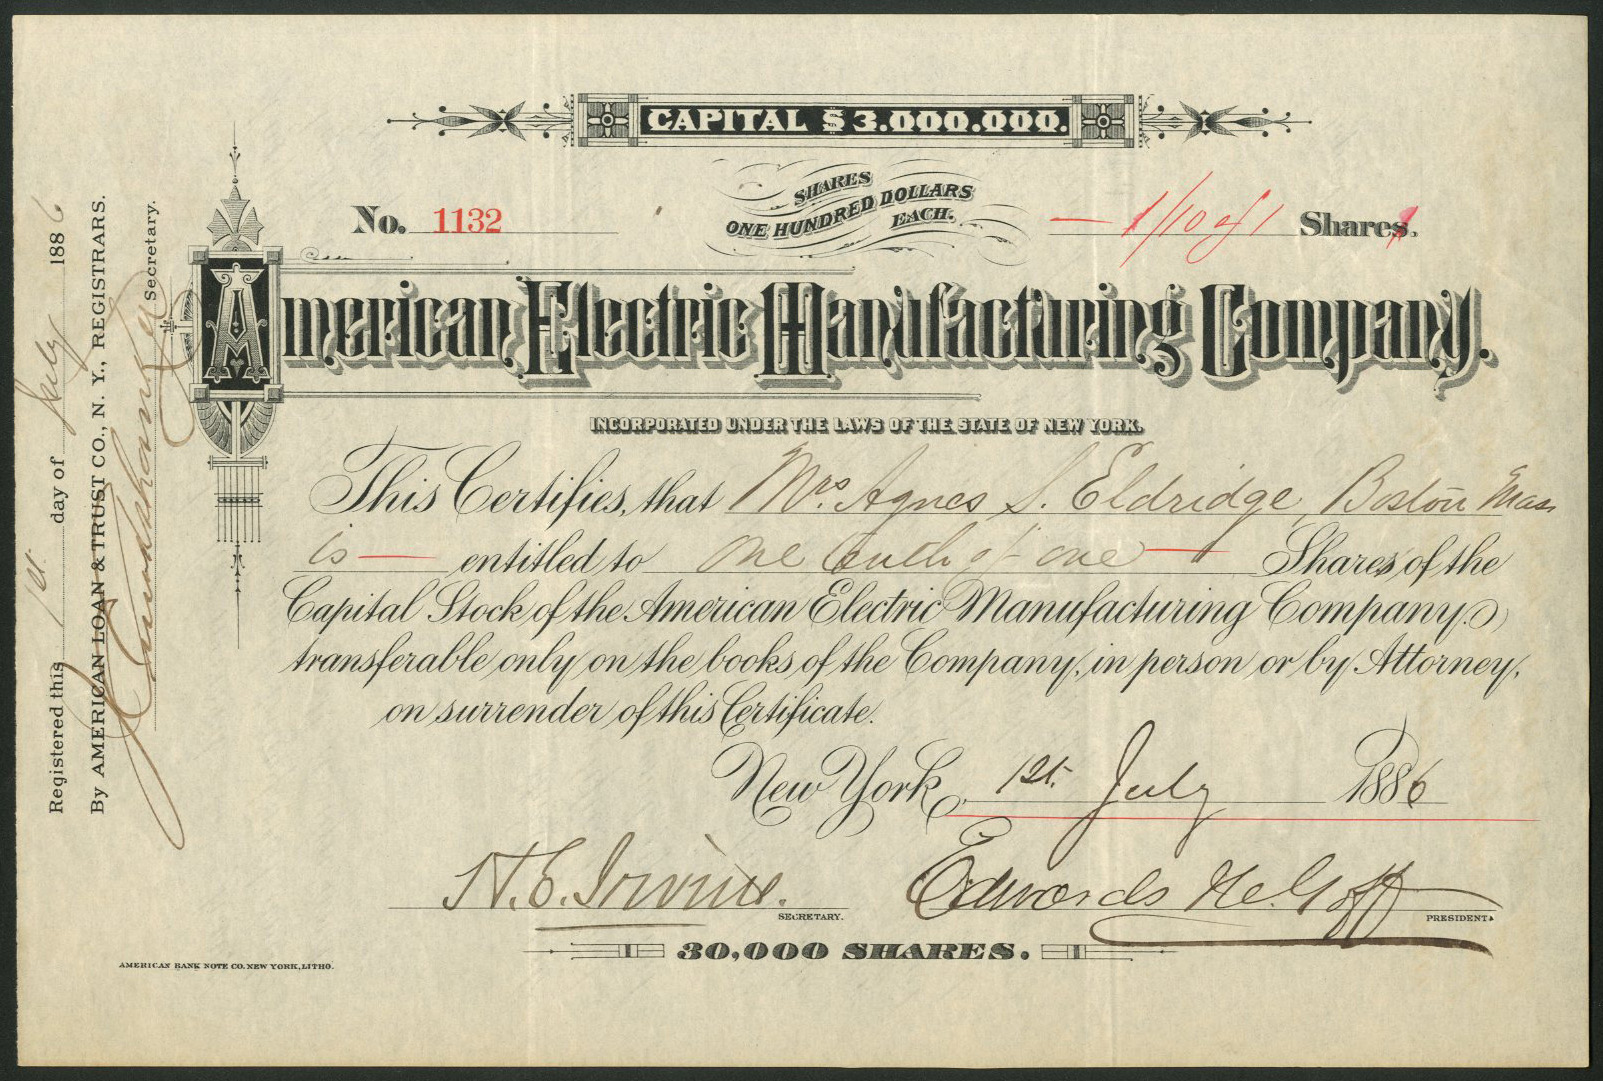 CAPITAL $3.000.000.
SHARES
ONE HUNDRED DOLLARS
EACH.
No. 1132
1/10 of 1 Shares.
American Electric Manufacturing Company.
INCORPORATED UNDER THE LAWS OF THE STATE OF NEW YORK.
This Certifies, that Mrs. Agnes S. Eldridge, Boston Mass
is entitled to one tenth of one Shares of the
Capital Stock of the American Electric Manufacturing Company,
transferable only on the books of the Company, in person or by Attorney,
on surrender of this Certificate.
New York, 1st. July 1886
H. C. Irvine.
SECRETARY.
Edwards H. Goff
PRESIDENT.
30,000 SHARES.
AMERICAN BANK NOTE CO. NEW YORK, LITHO.
Registered this 1st. day of July 1886
By AMERICAN LOAN & TRUST CO., N. Y., REGISTRARS.
Secretary.